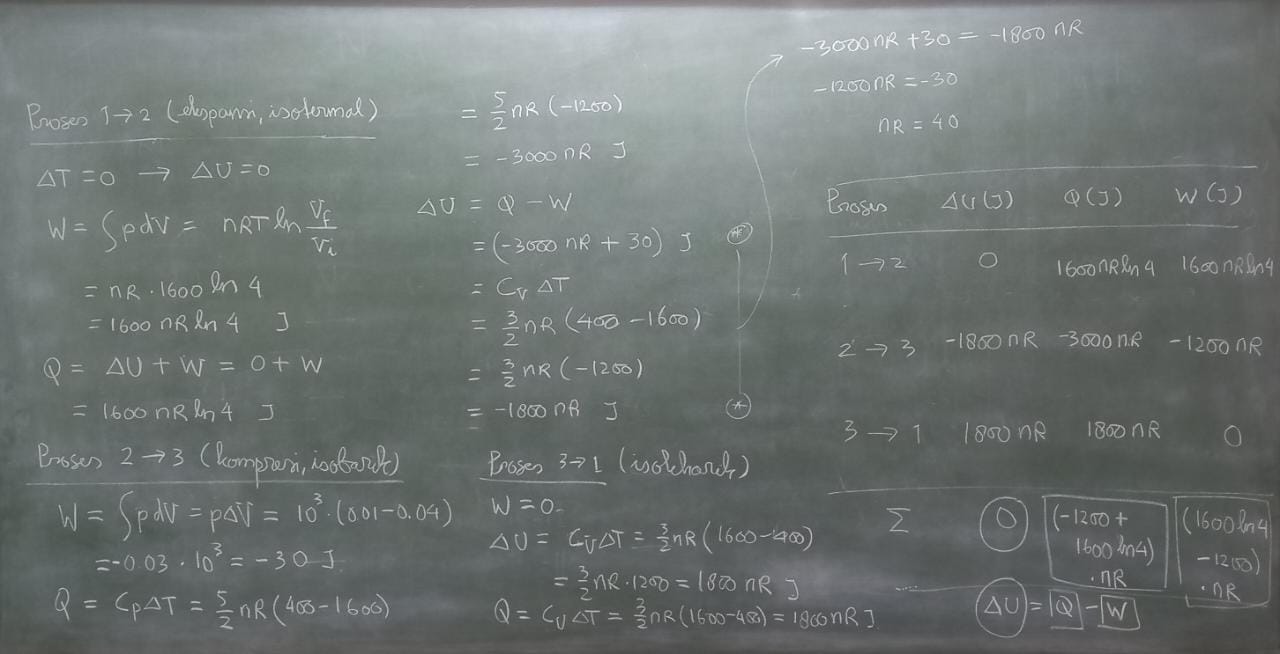 Proses 1→2 (ekspansi, isotermal)
ΔT = 0 → ΔU = 0
W = ∫pdV = nRT ln V_f/V_i
= nR . 1600 ln 4
= 1600 nR ln 4 J
Q = ΔU + W = 0 + W
= 1600 nR ln 4 J
Proses 2→3 (kompresi, isobarik)
W = ∫pdV = pΔV = 10³.(0.01-0.04)
= -0.03 . 10³ = -30 J
Q = CpΔT = 5/2 nR(400-1600)
= 5/2 nR (-1200)
= -3000 nR J
ΔU = Q - W
= (-3000 nR + 30) J (**)
= Cv ΔT
= 3/2 nR (400-1600)
= 3/2 nR (-1200)
= -1800 nR J (*)
Proses 3→1 (isokhorik)
W = 0
ΔU = CvΔT = 3/2 nR (1600-400)
= 3/2 nR . 1200 = 1800 nR J
Q = Cv ΔT = 3/2 nR (1600-400) = 1800 nR J
-3000 nR + 30 = -1800 nR
-1200 nR = -30
nR = 40
Proses ΔU (J) Q (J) W (J)
1→2 0 1600 nR ln 4 1600 nR ln 4
2→3 -1800 nR -3000 nR -1200 nR
3→1 1800 nR 1800 nR 0
Σ 0 (-1200 + 1600 ln 4) . nR (1600 ln 4 -1200) . nR
ΔU = Q - W